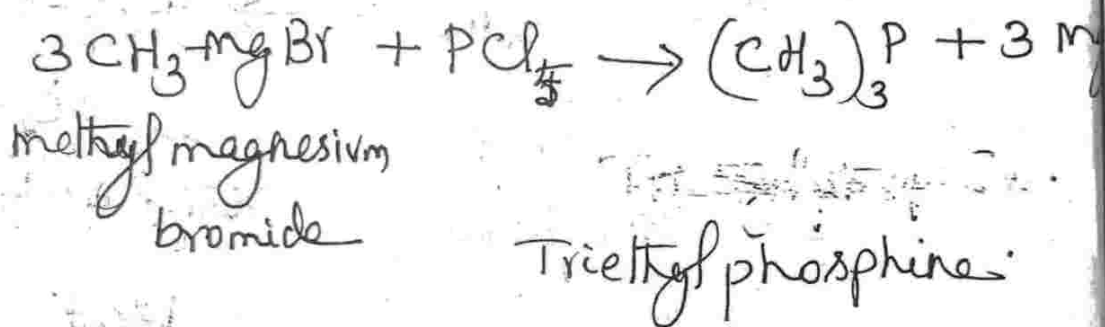 3 CH₃-mg Br + PCl₅ → (CH₃)₃P + 3 M
methyl magnesium
bromide
Triethyl phosphine.